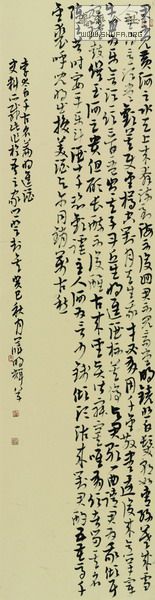 君不見黃河之水天上來奔流到海不復回君不見高堂明鏡悲白髮朝如青絲暮成雪
人生得意須盡歡莫使金樽空對月天生我材必有用千金散盡還復來烹羊宰牛
且為樂會須一飲三百杯岑夫子丹丘生將進酒杯莫停與君歌一曲請君為我傾耳
聽鐘鼓饌玉何足貴但願長醉不復醒古來聖賢皆寂寞惟有飲者留其名陳王
昔時宴平樂斗酒十千恣歡謔主人何為言少錢徑須沽取對君酌五花馬千
金裘呼兒將出換美酒與爾同銷萬古愁
將進酒
癸巳秋月